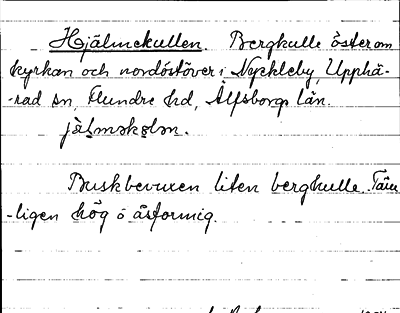 Hjälmekullen. Bergkulle österom
kyrkan och nordöstöver i Nyckleby, Upphä-
-rad sn, Flundre hd, Älfsborgs län.
jä̀lməkələn.
Buskbevuxen liten bergkulle. Täm
-ligen hög o åsformig.